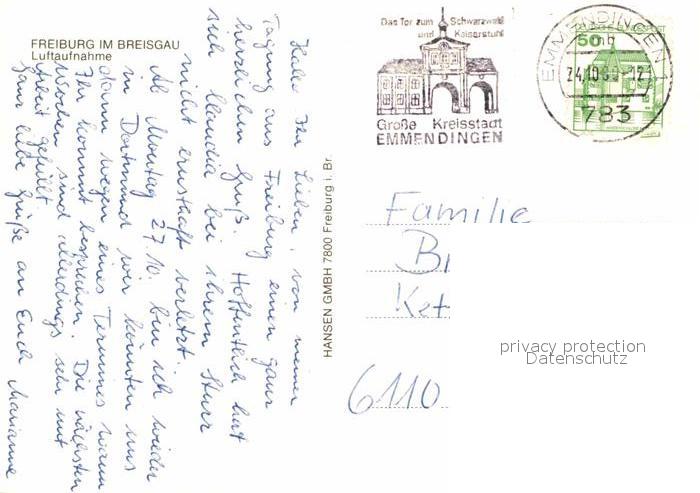 FREIBURG IM BREISGAU
Luftaufnahme
Hallo Ihr Lieben, von meiner
Tagung aus Freiburg einen ganz
herzlichen Gruß. Hoffentlich hat
sich Claudia bei ihrem Sturz
nicht ernsthaft verletzt.
Ab Montag 27.10. bin ich wieder
in Dortmund wir könnten uns
dann wegen eines Termines wann
Ihr kommt besprechen. Die nächsten
Wochen sind allerdings sehr mit
Arbeit gefüllt.
Ganz liebe Grüße an Euch Marianne
HANSEN GMBH 7800 Freiburg i. Br
Das Tor zum Schwarzwald
und Kaiserstuhl
Große Kreisstadt
EMMENDINGEN
EMMENDINGEN 1
50
mb
24.10.80-12
783
Familie
Bi
Ket
6110
privacy protection
Datenschutz